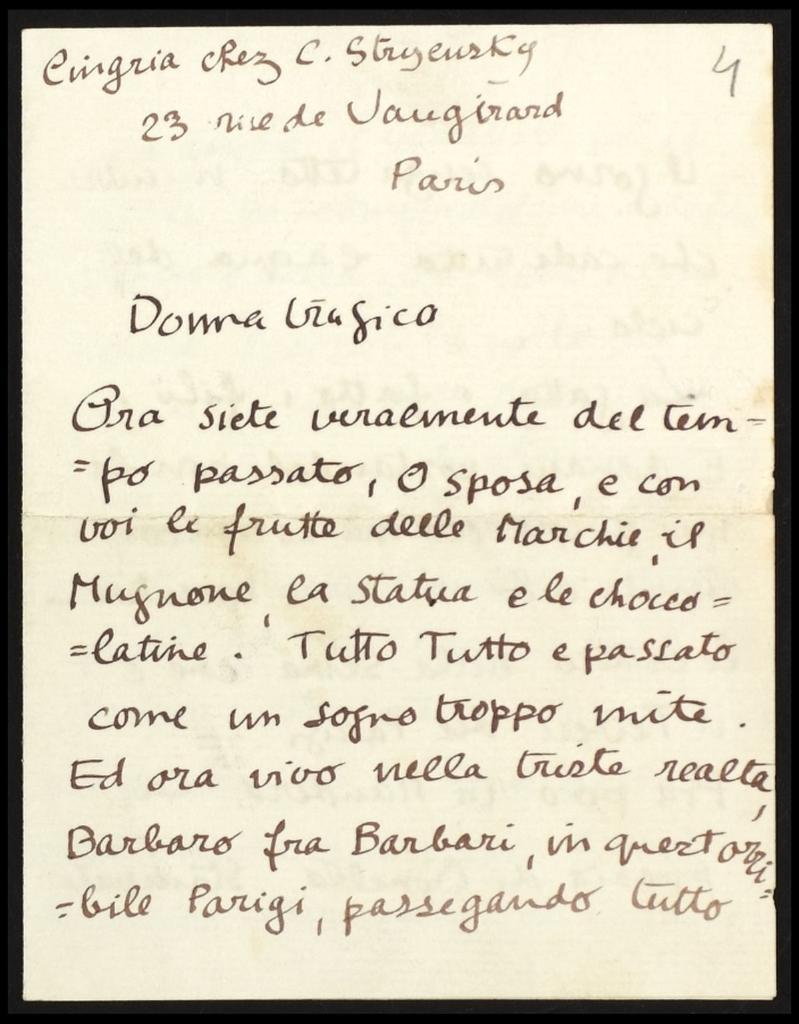 Cingria chez C. Stryensky
4
23 rue de Vaugirard
Paris
Donna tragico
Ora siete veralmente del tem=
=po passato, O sposa, e con
voi le frutte delle Marchie, il
Mugnone, la statua e le chocco=
=latine. Tutto Tutto e passato
come un sogno troppo mite.
Ed ora vivo nella triste realta,
Barbaro fra Barbari, in quest orri=
=bile Parigi, passegando tutto